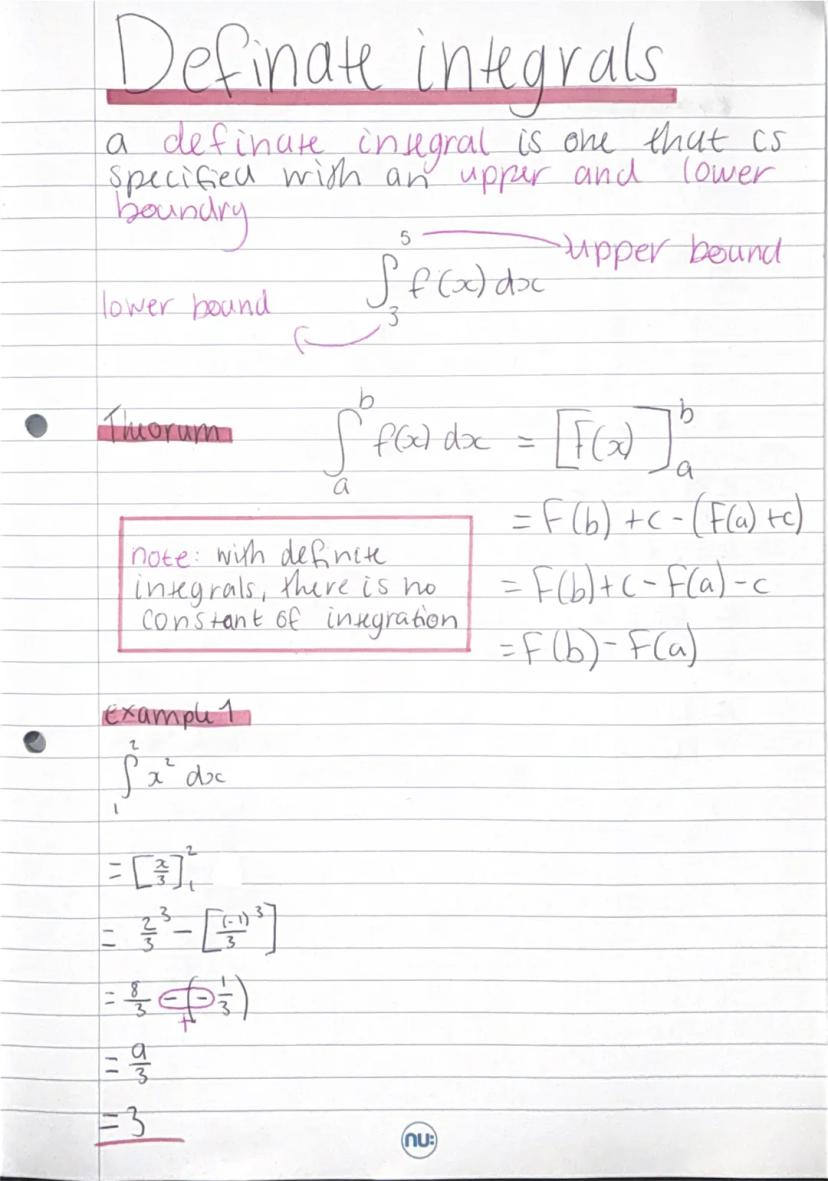 Definate integrals
a definate integral is one that is
specified with an upper and lower
boundry
5
upper bound
∫ f(x) dx
lower bound
3
Theorum
∫ₐᵇ f(x) dx = [F(x)]ₐᵇ
= F(b) + c - (F(a) + c)
note: with definite
integrals, there is no
constant of integration
= F(b) + c - F(a) - c
= F(b) - F(a)
example 1
∫₁² x² dx
= [x/3]₁²
= 2/3³ - [(-1)/3³]
= 8/3 - (- 1/3)
+
= 9/3
= 3
nu: